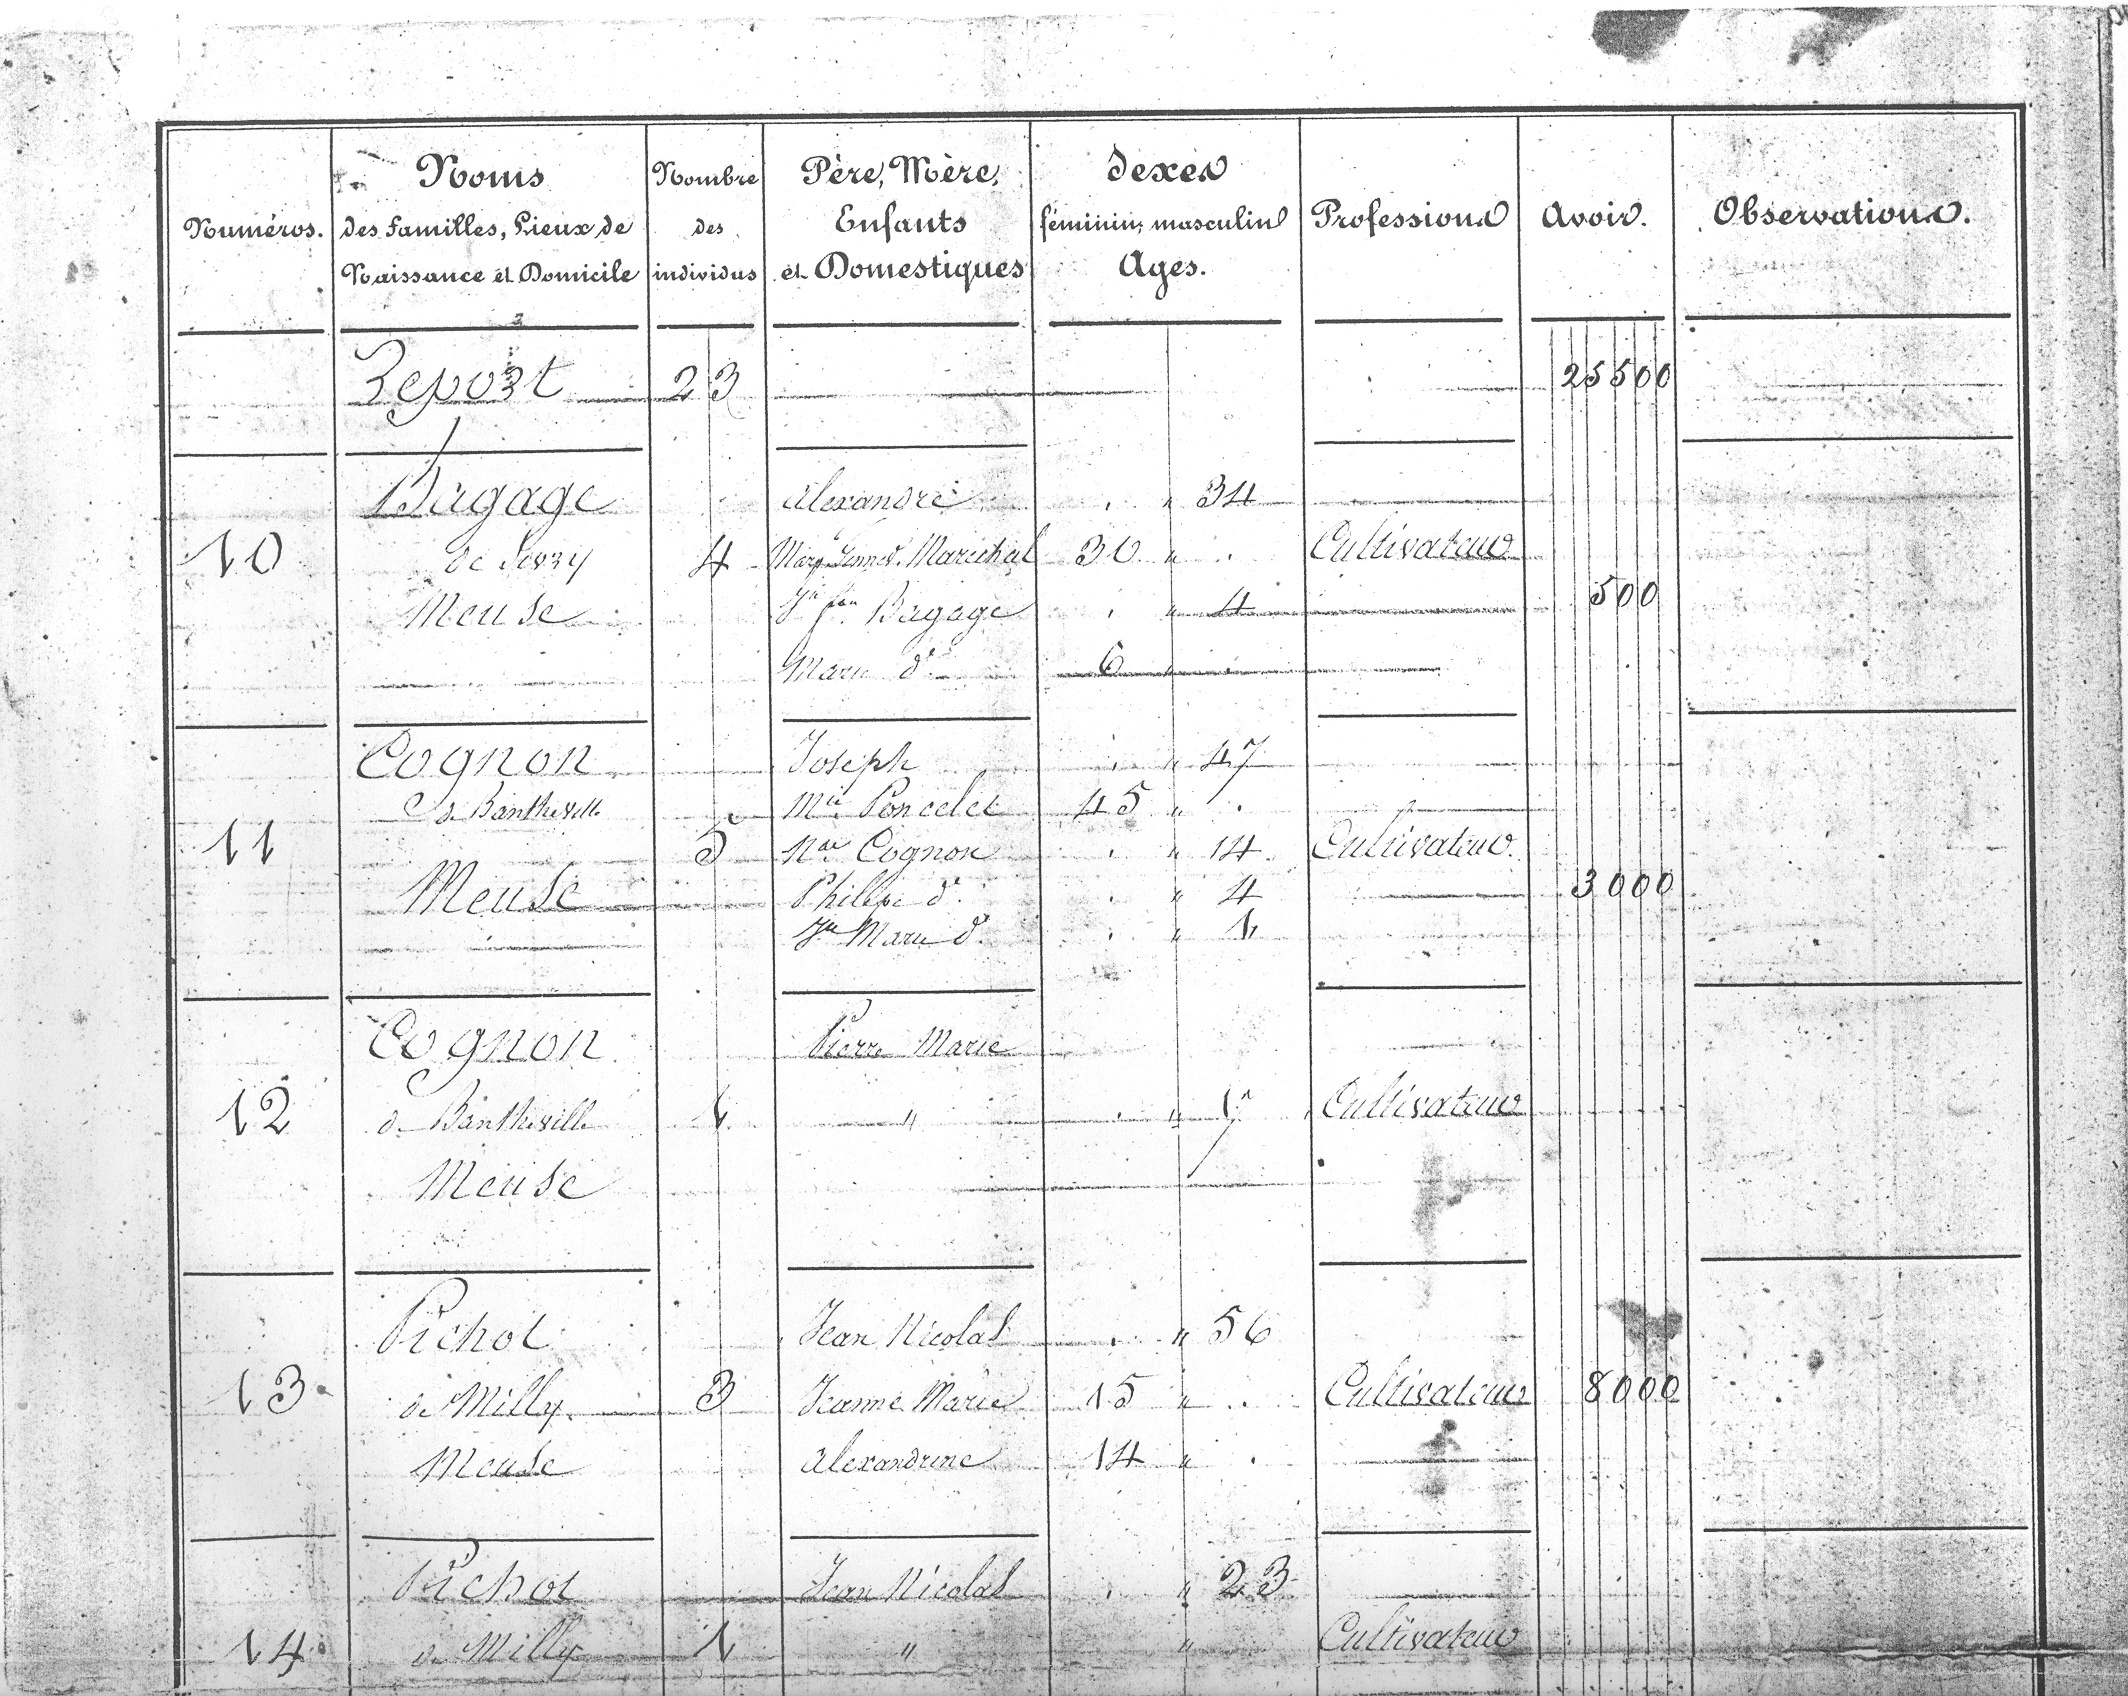 Numéros.
Noms
des familles, Lieux de
Naissance et Domicile
Nombre
des
individus
Père, Mère,
Enfants
et Domestiques
Sexes
féminin, masculin
Ages.
Professions
Avoir.
Observations.
Report 23 25500
Bagage Alexandre " 34
10 de Sivry 4 Marechal 30 " Cultivateur
Meuse Bagage " 4 500
Marie d° 6 "
Cognon Joseph " 47
de Bantheville Mie Poncelet 45 "
11 5 Nas Cognon " 14 Cultivateur
Meuse Philippe d° " 4 3000
Jn Marie d° " 1
Cognon Pierre Marie
12 de Bantheville 1 " " Cultivateur
Meuse
Pichot Jean Nicolas " 56
13 de Milly 3 Jeanne Marie 15 " Cultivateur 8000
Meuse Alexandrine 14 "
Pichot Jean Nicolas " 23
14 de Milly 1 " " Cultivateur